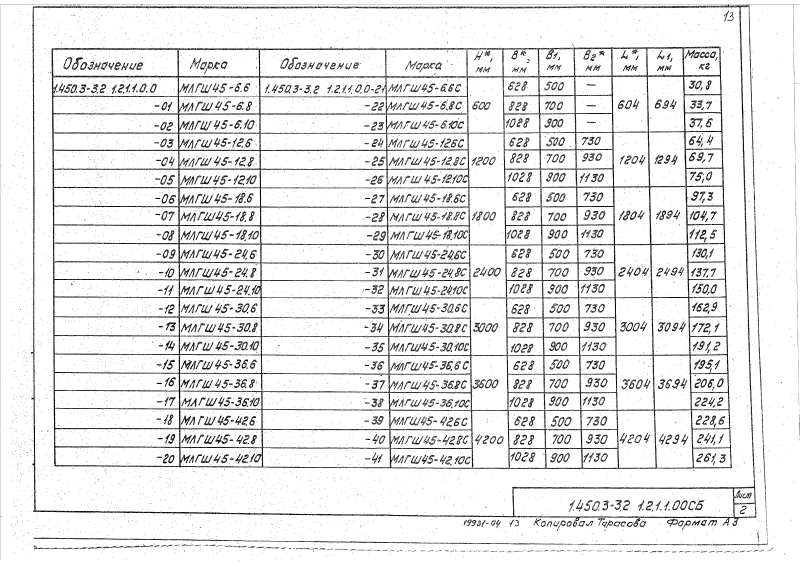 13
Обозначение Марка Обозначение Марка Н*, мм В*, мм В1, мм В2*, мм L*, мм L1, мм Масса, кг
1.450.3-3.2 1.2.1.1.0.0 МЛГШ45-6.6 1.450.3-3.2 1.2.1.1.0.0-21 МЛГШ45-6.6С 628 500 — 30,8
-01 МЛГШ45-6.8 -22 МЛГШ45-6.8С 600 828 700 — 604 694 33,7
-02 МЛГШ45-6.10 -23 МЛГШ45-6.10С 1028 900 — 37,6
-03 МЛГШ45-12.6 -24 МЛГШ45-12.6С 628 500 730 64,4
-04 МЛГШ45-12.8 -25 МЛГШ45-12.8С 1200 828 700 930 1204 1294 69,7
-05 МЛГШ45-12.10 -26 МЛГШ45-12.10С 1028 900 1130 75,0
-06 МЛГШ45-18.6 -27 МЛГШ45-18.6С 628 500 730 97,3
-07 МЛГШ45-18.8 -28 МЛГШ45-18.8С 1800 828 700 930 1804 1894 104,7
-08 МЛГШ45-18.10 -29 МЛГШ45-18.10С 1028 900 1130 112,5
-09 МЛГШ45-24.6 -30 МЛГШ45-24.6С 628 500 730 130,1
-10 МЛГШ45-24.8 -31 МЛГШ45-24.8С 2400 828 700 930 2404 2494 137,7
-11 МЛГШ45-24.10 -32 МЛГШ45-24.10С 1028 900 1130 150,0
-12 МЛГШ45-30.6 -33 МЛГШ45-30.6С 628 500 730 162,9
-13 МЛГШ45-30.8 -34 МЛГШ45-30.8С 3000 828 700 930 3004 3094 172,1
-14 МЛГШ45-30.10 -35 МЛГШ45-30.10С 1028 900 1130 191,2
-15 МЛГШ45-36.6 -36 МЛГШ45-36.6С 628 500 730 195,1
-16 МЛГШ45-36.8 -37 МЛГШ45-36.8С 3600 828 700 930 3604 3694 206,0
-17 МЛГШ45-36.10 -38 МЛГШ45-36.10С 1028 900 1130 224,2
-18 МЛГШ45-42.6 -39 МЛГШ45-42.6С 628 500 730 228,6
-19 МЛГШ45-42.8 -40 МЛГШ45-42.8С 4200 828 700 930 4204 4294 241,1
-20 МЛГШ45-42.10 -41 МЛГШ45-42.10С 1028 900 1130 261,3
1.450.3-3.2 1.2.1.1.00СБ Лист 2
19931-04 13 Копировал Тарасова Формат А3